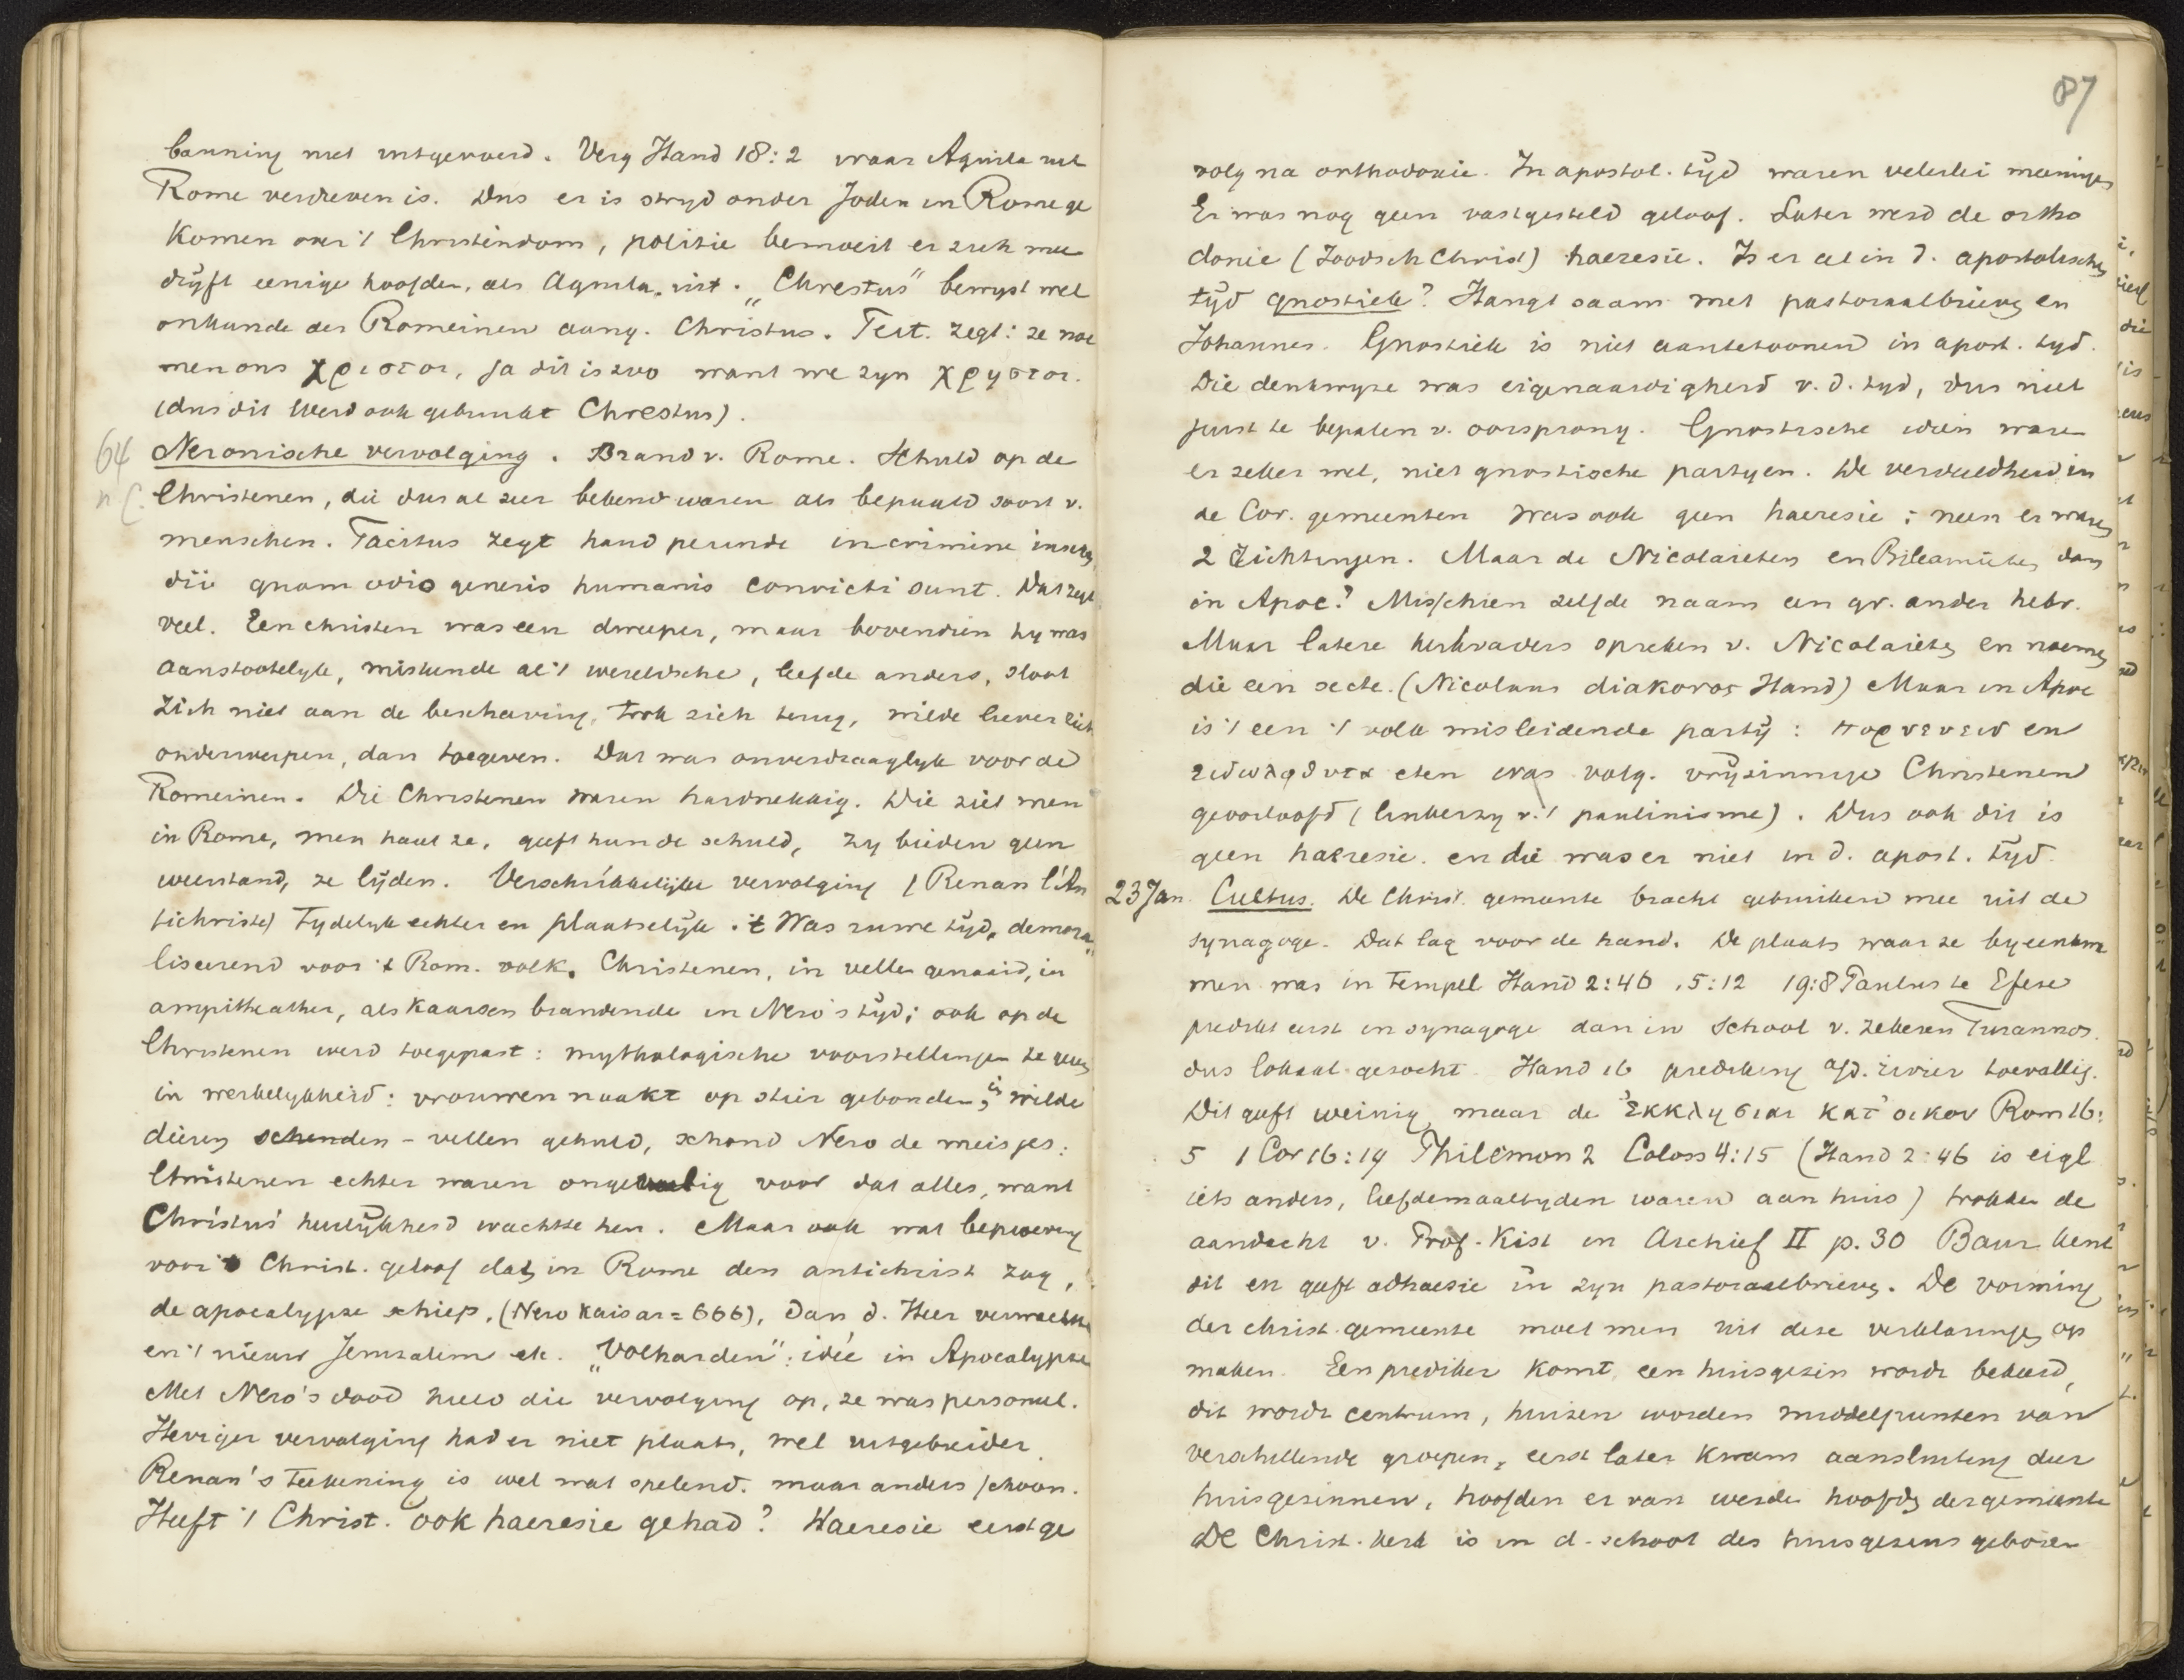 banning niet uitgevoerd. Verg Hand 18:2 waar Aquila uit
Rome verdreven is. Dus er is stryd onder Joden in Rome ge
komen over 't Christendom, politie bemoeit er zich mee
dryft eenige hoofden, als Aquila, uit. „Chrestus" bewyst wel
onkunde der Romeinen aang. Christus. Tert. zegt: ze noe
men ons χριστοι, ja dit is zoo want we zyn χρηστοι.
(dus dit werd ook gebruikt Chrestus).
64
n C.
Neronische vervolging. Brand v. Rome. Schuld op de
Christenen, die dus al zeer bekend waren als bepaald soort v.
menschen. Tacitus zegt haud perinde in crimine incen
dii quam odio generis humanis convicti sunt. Dat zegt
veel. Een christen was een dweeper, maar bovendien hy was
aanstootelyk, miskende al 't wereldsche, leefde anders, sloot
zich niet aan de beschaving, trok zich terug, wilde liever zich
onderwerpen, dan toegeven. Dat was onverdraaglyk voor de
Romeinen. Die Christenen waren hardnekkig. Die ziet men
in Rome, men haat ze, geeft hun de schuld, zy bieden geen
weerstand, ze lyden. Verschrikkelijke vervolging (Renan l'An
tichriste) Tydelyk echter en plaatselyk. 't Was ruwe tyd, demora
liseerend voor 't Rom. volk. Christenen, in vellen genaaid, in
ampitheather, als kaarsen brandende in Nero's tyd; ook op de
Christenen werd toegepast: mythologische voorstellingen te geven
in werkelykheid: vrouwen naakt op stier gebonden, in wilde
dieren schenden – vellen gehuld, schond Nero de meisjes:
Christenen echter waren ongevoelig voor dat alles, want
Christus' heerlykheid wachtte hen. Maar ook wat beproeving
voor 't Christ. geloof dat in Rome den antichrist zag,
de apocalypse schiep, (Nero Kaisar = 666), dan d. Heer verwachtte
en 't nieuw Jeruzalem etc. „Volharden": idée in Apocalypse
Met Nero's dood hield die vervolging op, ze was personeel.
Heviger vervolging had er niet plaats, wel uitgebreider.
Renan's teekening is wel wat spelend. maar anders schoon.
Heeft 't Christ. ook haeresie gehad? Haeresie eerst ge
87
volg na orthodoxie. In apostol. tyd waren velerlei meeningen
Er was nog geen vastgesteld geloof. Later werd de ortho
doxie (Joodsch Christ) haeresie. Is er al in d. apostolischen
tyd gnostiek? Hangt saam met pastoraalbrieven en
Johannes. Gnostiek is niet aantetoonen in apost. tyd.
Die denkwyze was eigenaardigheid v. d. tyd, dus niet
juist te bepalen v. oorsprong. Gnostische ideën waren
er zeker wel, niet gnostische partyen. De verdeeldheid in
de Cor. gemeenten was ook geen haeresie; neen er waren
2 richtingen. Maar de Nicolaieten en Bileamieten dan
in Apoc? Misschien zelfde naam een gr. ander hebr.
Maar latere kerkvaders spreken v. Nicolaieten en noemen
die een secte. (Nicolaus diakonos Hand) Maar in Apoc
is 't een 't volk misleidende party: πορνευειν en
ειδωλοθυτα eten was volg. vryzinnige Christenen
geoorloofd (linkerzy v. 't paulinisme). Dus ook dit is
geen haeresie. en die was er niet in d. apost. tyd.
23 Jan. Cultus. De Christ. gemeente bracht gebruiken mee uit de
synagoge. Dat lag voor de hand. De plaats waar ze byeenkwa
men was in tempel Hand 2:46, 5:12 19:8 Paulus te Efeze
predikt eerst in synagoge dan in school v. zekeren Turannos.
dus lokaal gezocht. Hand 16 prediking a/d. rivier toevallig.
Dit geeft weinig maar de ἐκκλησιαι κατ' οικον Rom 16:
5 1 Cor 16:19 Philémon 2 Coloss 4:15 (Hand 2:46 is eigl
iets anders, liefdemaaltyden waren aan huis) trokken de
aandacht v. Prof. Kist in Archief II p. 30 Baur kent
dit en geeft adhaesie in zyn pastoraalbrieven. De vorming
der christ. gemeente moet men uit deze verklaringen op
maken. Een prediker komt, een huisgezin wordt bekeerd,
dit wordt centrum, huizen worden middelpunten van
verschillende groepen, eerst later kwam aansluiting der
huisgezinnen, hoofden er van werden hoofden der gemeente
De Christ. kerk is in d. school des huisgezins geboren